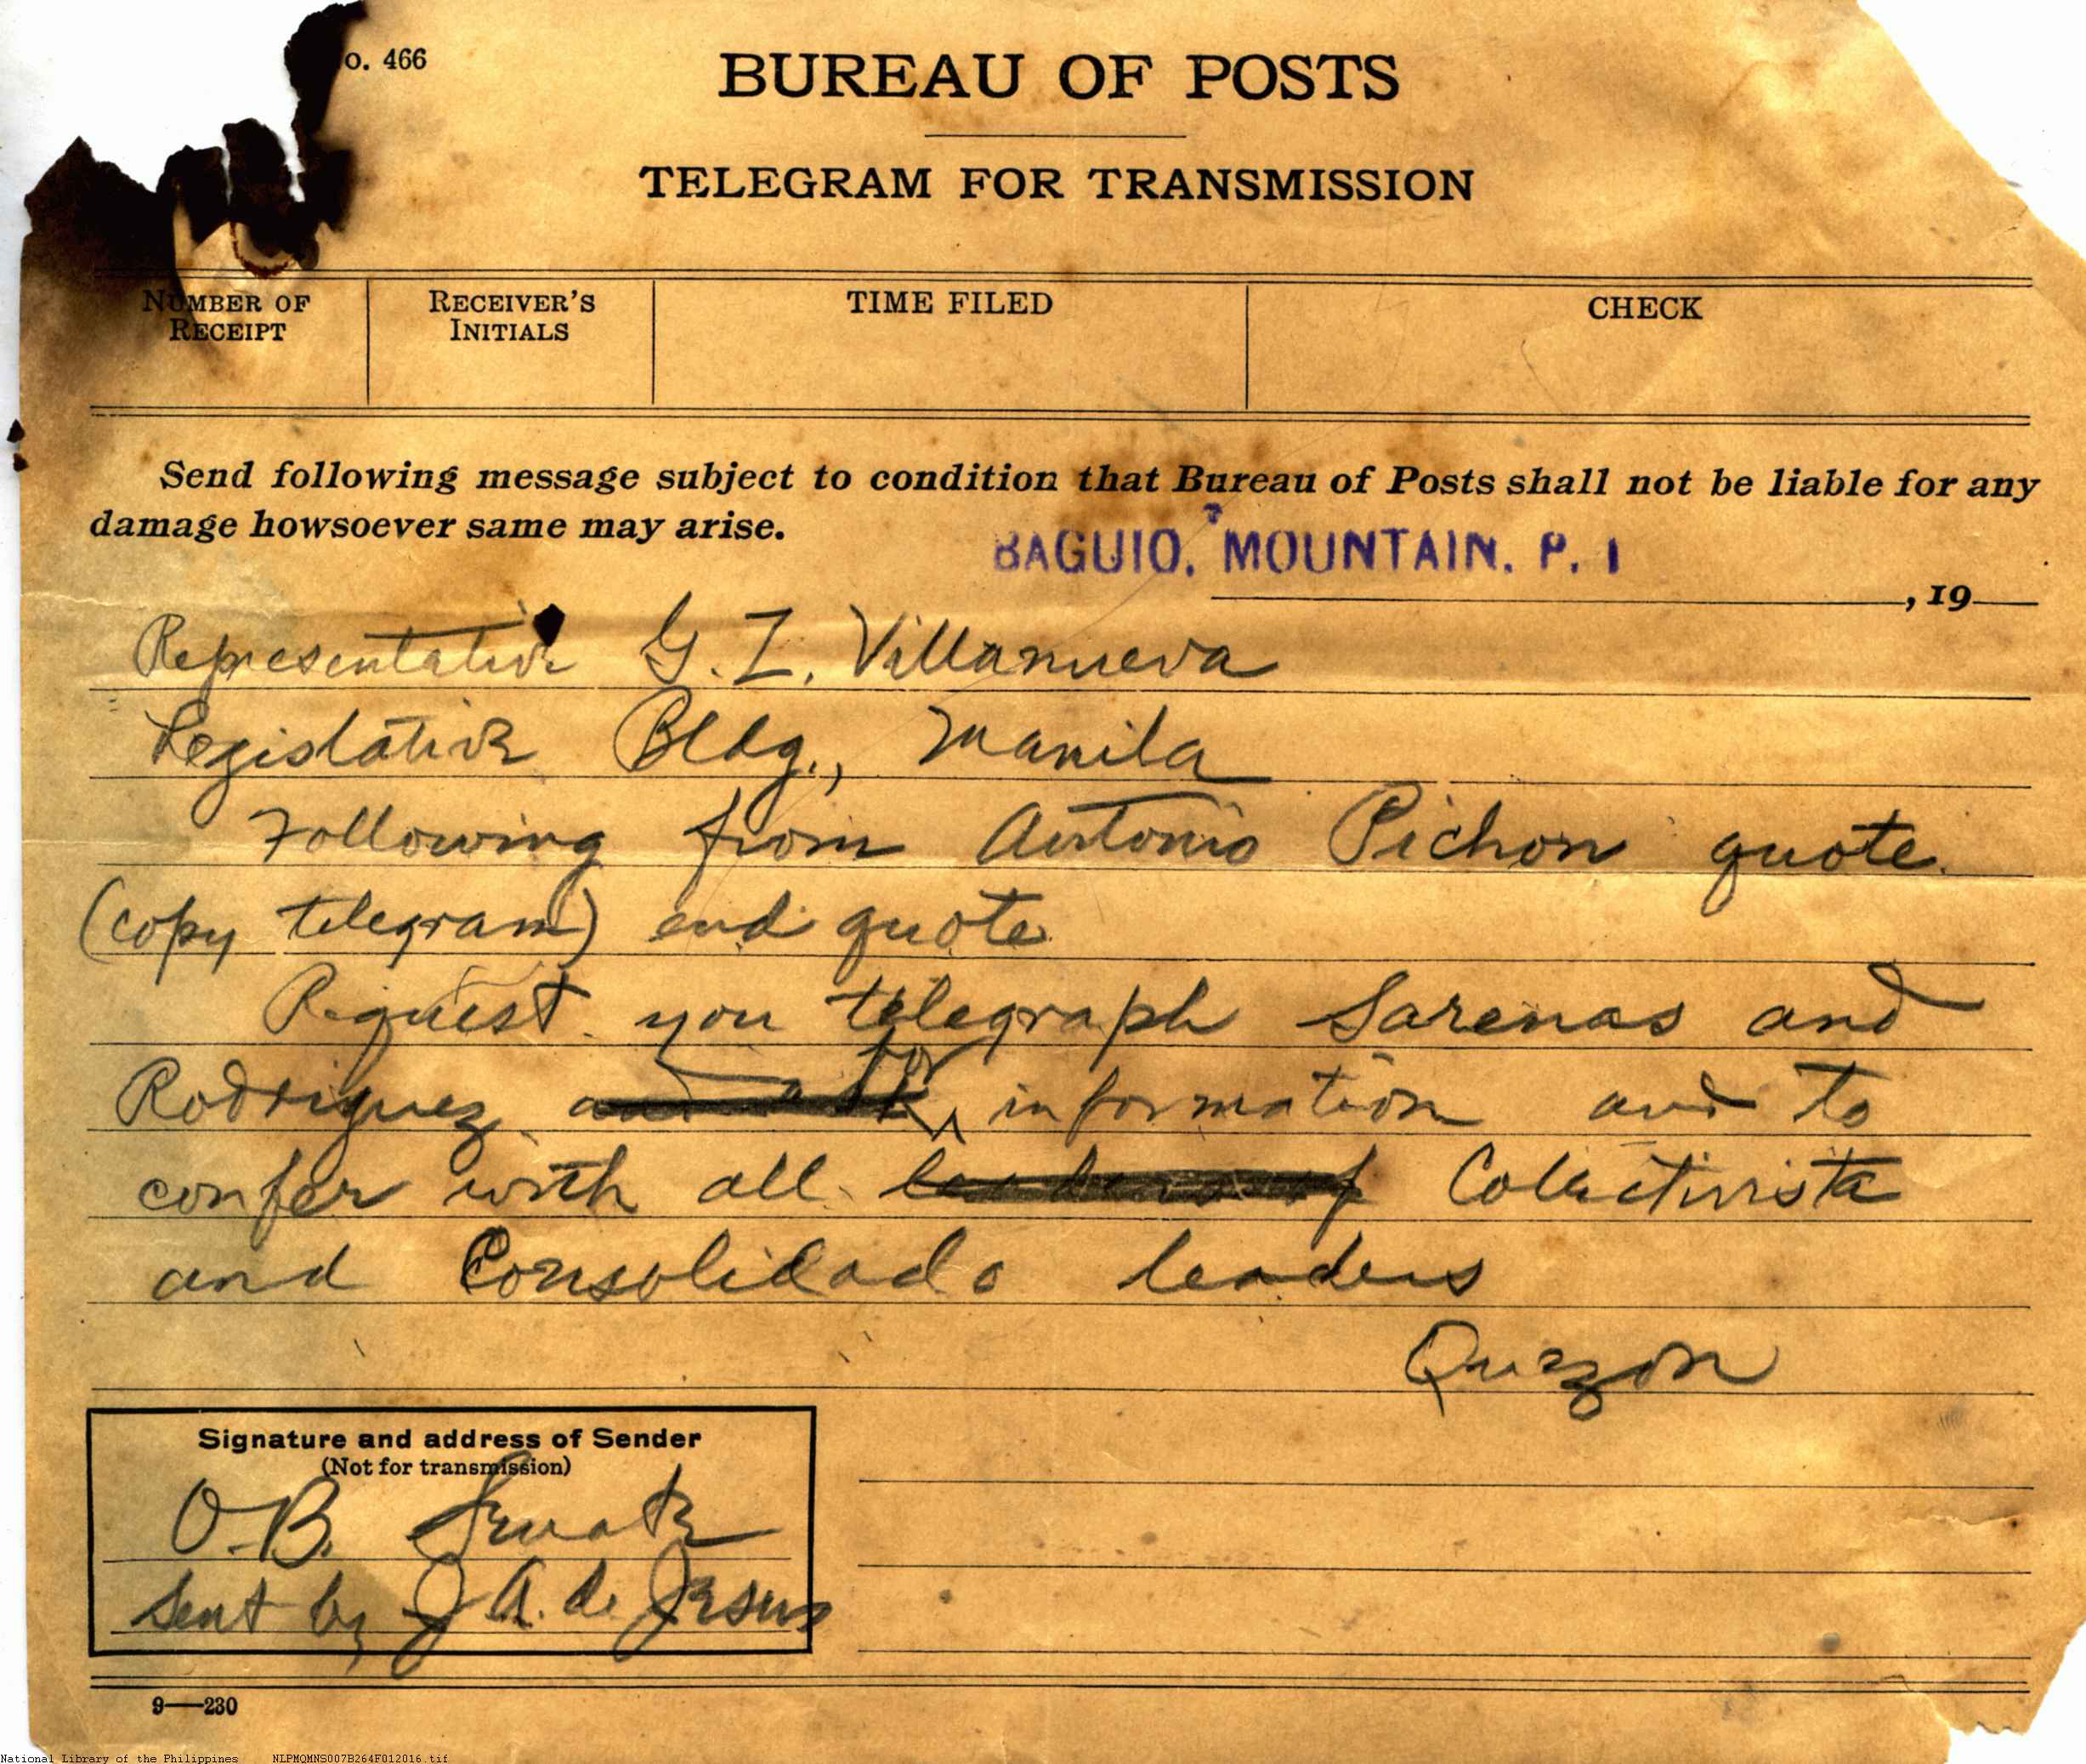 o. 466
BUREAU OF POSTS
TELEGRAM FOR TRANSMISSION
NUMBER OF RECEIPT
RECEIVER'S INITIALS
TIME FILED
CHECK
Send following message subject to condition that Bureau of Posts shall not be liable for any
damage howsoever same may arise.
BAGUIO, MOUNTAIN, P. I
, 19
Representative G. Z. Villanueva
Legislative Bldg., Manila
Following from Antonio Pichon quote
(copy telegram) end quote
Request you telegraph Sarenas and
Rodriguez and ask for information and to
confer with all leaders of Colectivista
and Consolidado leaders
Quezon
Signature and address of Sender
(Not for transmission)
O.B. Senate
Sent by J A. de Jesus
9—230
National Library of the Philippines NLPMQMNS007B264F012016.tif